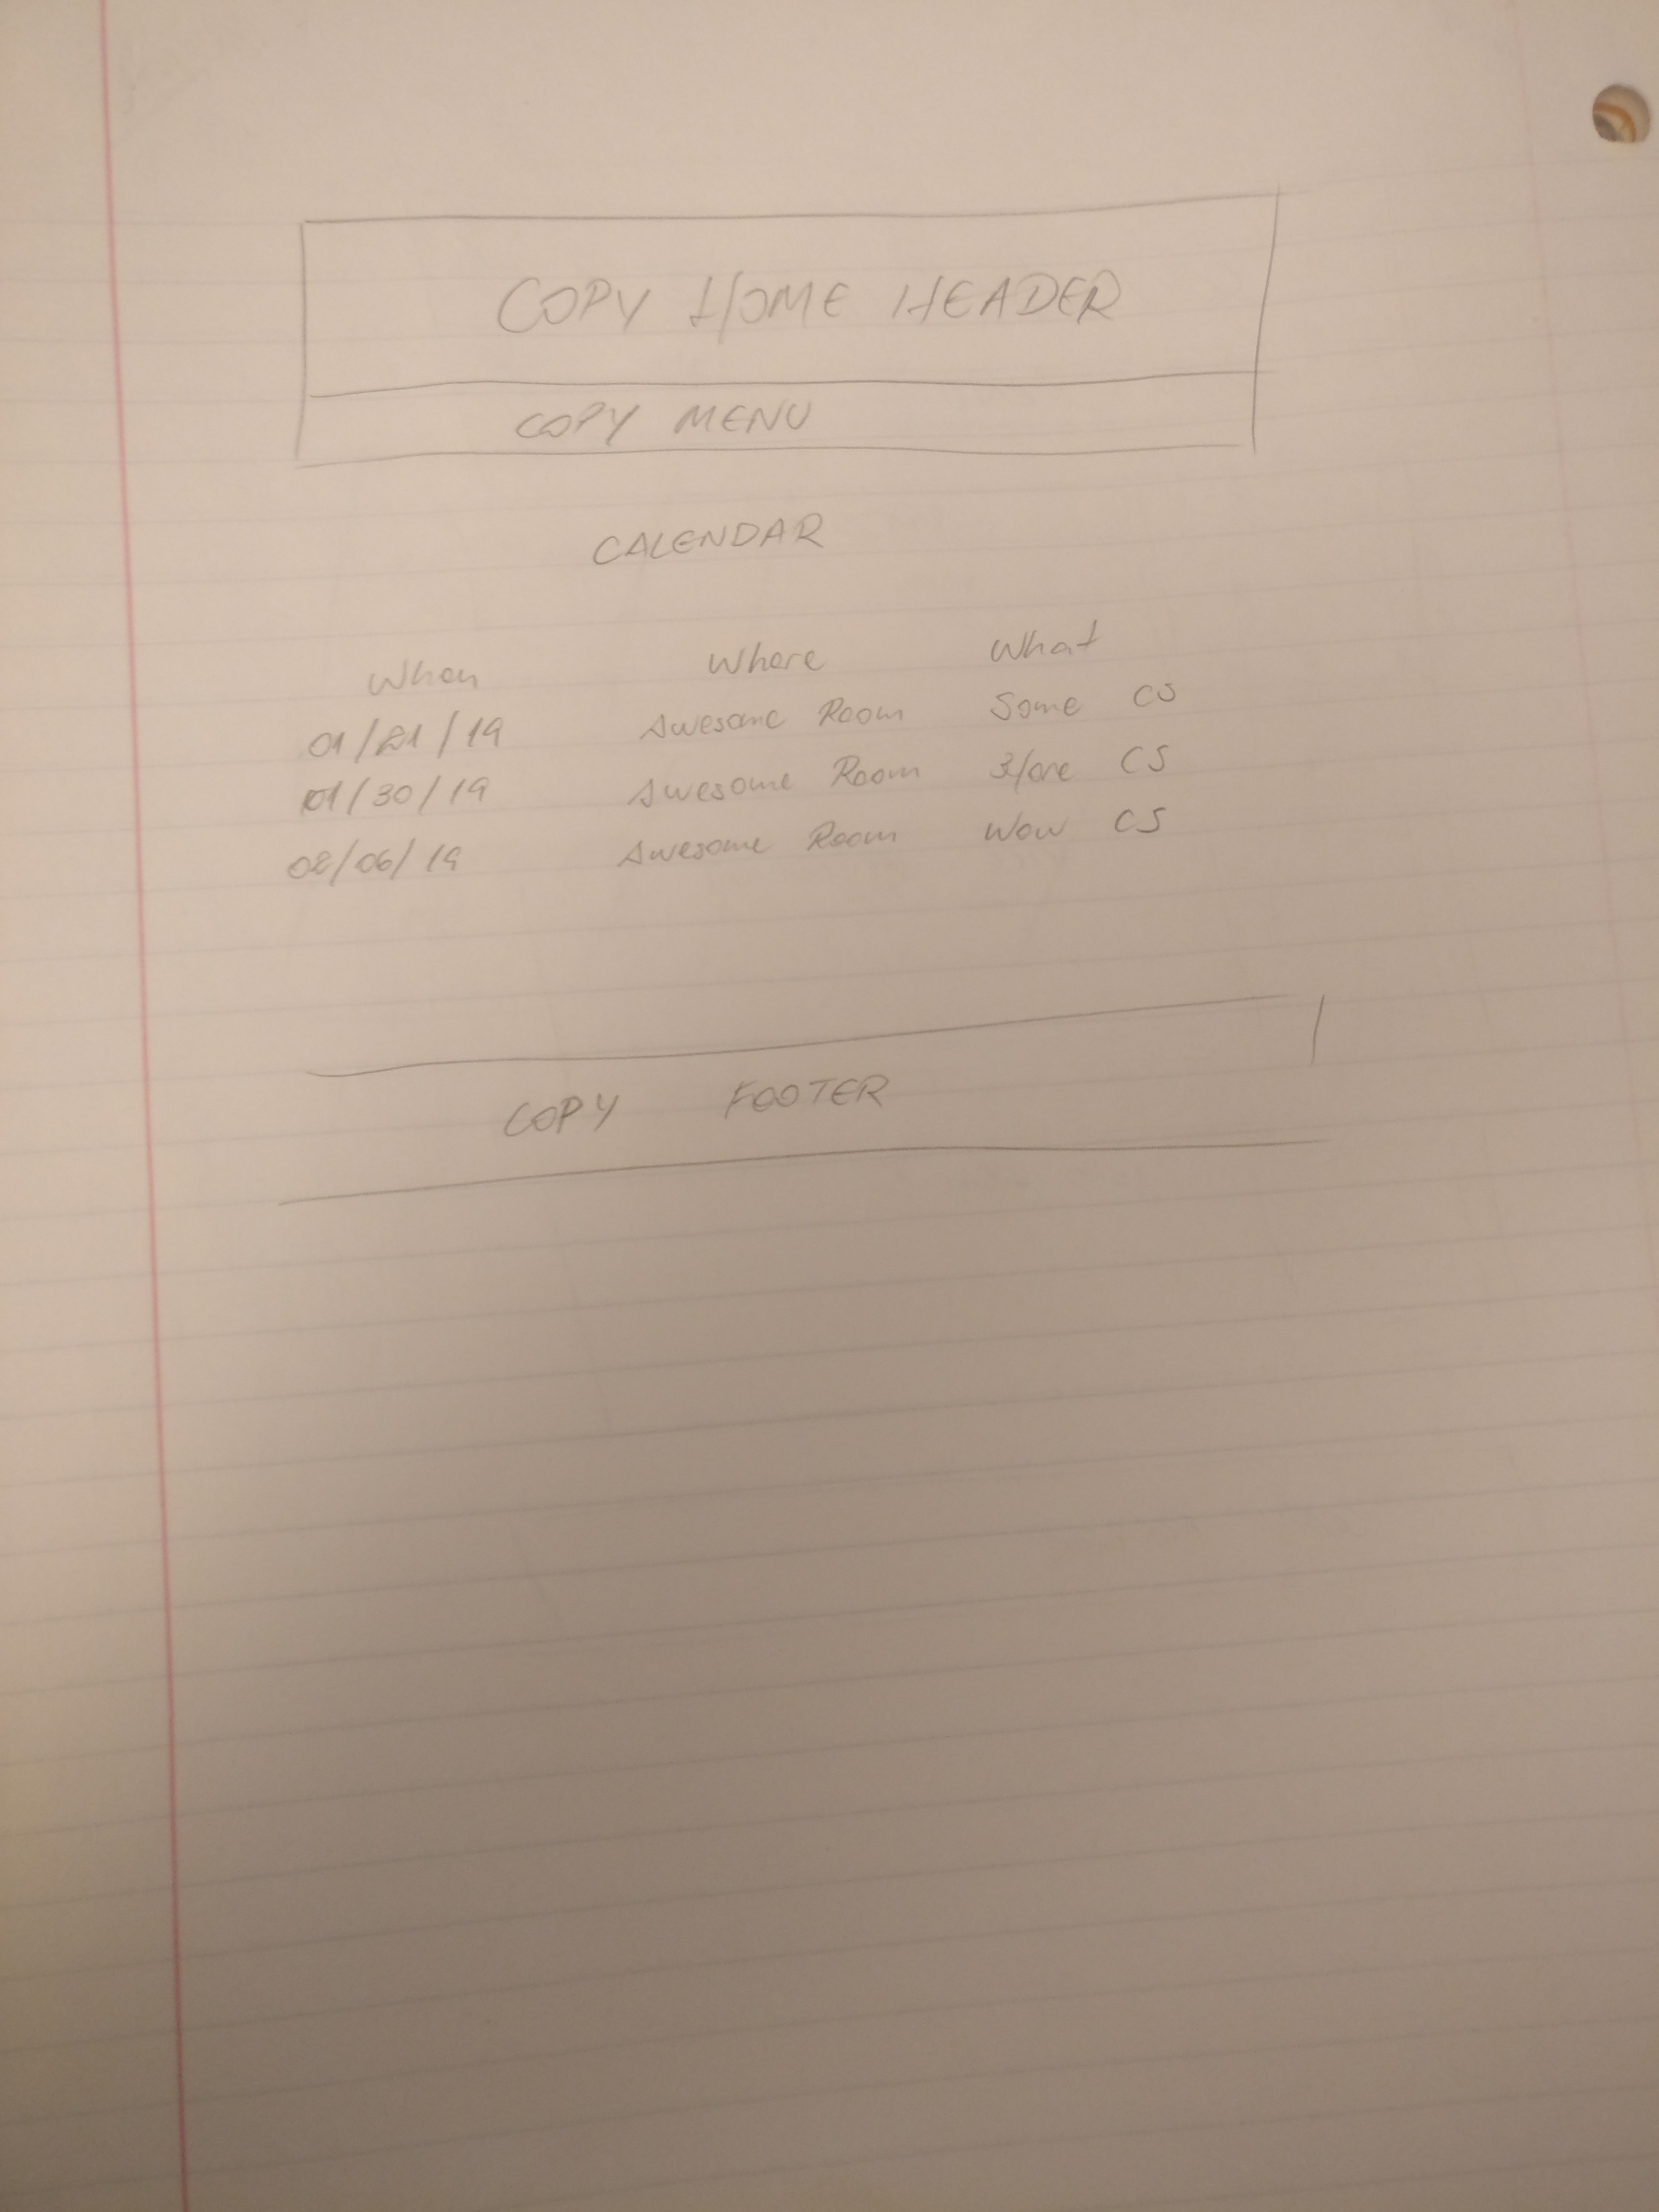 COPY HOME HEADER
COPY MENU
CALENDAR
When Where What
01/21/19 Awesome Room Some CS
01/30/19 Awesome Room More CS
02/06/19 Awesome Room Wow CS
COPY FOOTER